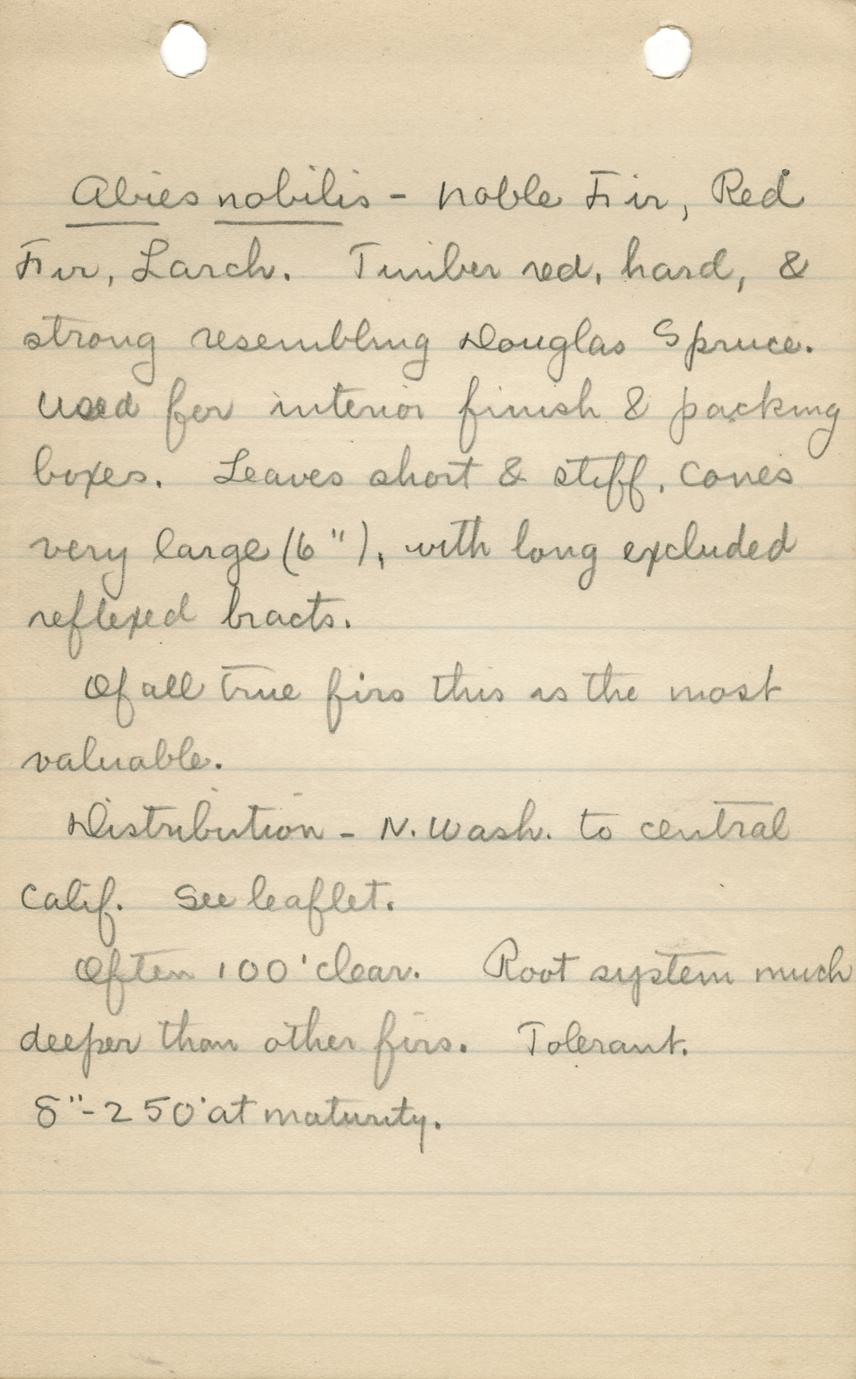 Abies nobilis - Noble Fir, Red
Fir, Larch. Timber red, hard, &
strong resembling Douglas Spruce.
Used for interior finish & packing
boxes. Leaves short & stiff, Cones
very large (6"), with long excluded
reflexed bracts.
Of all true firs this is the most
valuable.
Distribution - N. Wash. to central
Calif. See leaflet.
Often 100' clear. Root system much
deeper than other firs. Tolerant.
8"-250' at maturity.